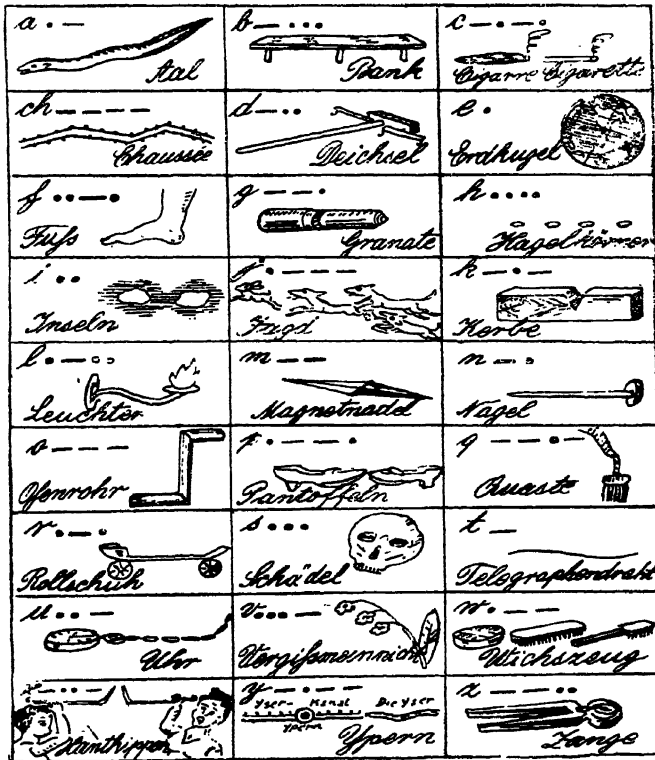 a · —
Aal
b — · · ·
Bank
c — · — ·
Cigarre Cigarette
ch — — — —
Chaussée
d — · ·
Deichsel
e ·
Erdkugel
f · · — ·
Fuss
g — — ·
Granate
h · · · ·
Hagelkörner
i · ·
Inseln
j · — — —
Jagd
k — · —
Kerbe
l · — · ·
Leuchter
m — —
Magnetnadel
n — ·
Nagel
o — — —
Ofenrohr
p · — — ·
Pantoffeln
q — — · —
Quaste
r · — ·
Rollschuh
s · · ·
Schädel
t —
Telegraphendraht
u · · —
Uhr
v · · · —
Vergißmeinnich
w · — —
Wichszeug
Xanthippen
y — · — —
Yser-Kanal Die Yser
Ypern
Ypern
z — — · ·
Zange